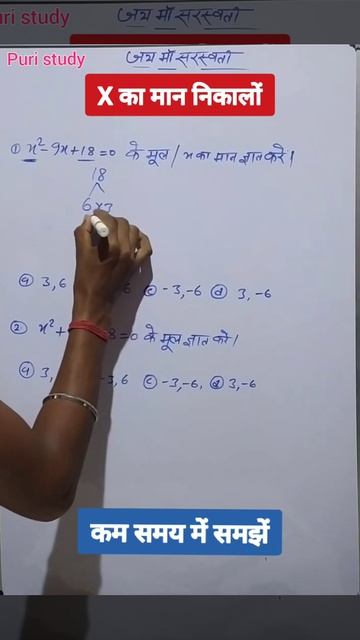 uri study
जय माँ सरस्वती
Puri study
जय माँ सरस्वती
X का मान निकालों
① x²-9x+18=0 के मूल / x का मान ज्ञात करें।
18
6×3
ⓐ 3,6 6 ⓒ -3,-6 ⓓ 3,-6
② x²+ 8=0 के मूल ज्ञात करें।
ⓐ 3, -3,6 ⓒ -3,-6, ⓓ 3,-6
कम समय में समझें